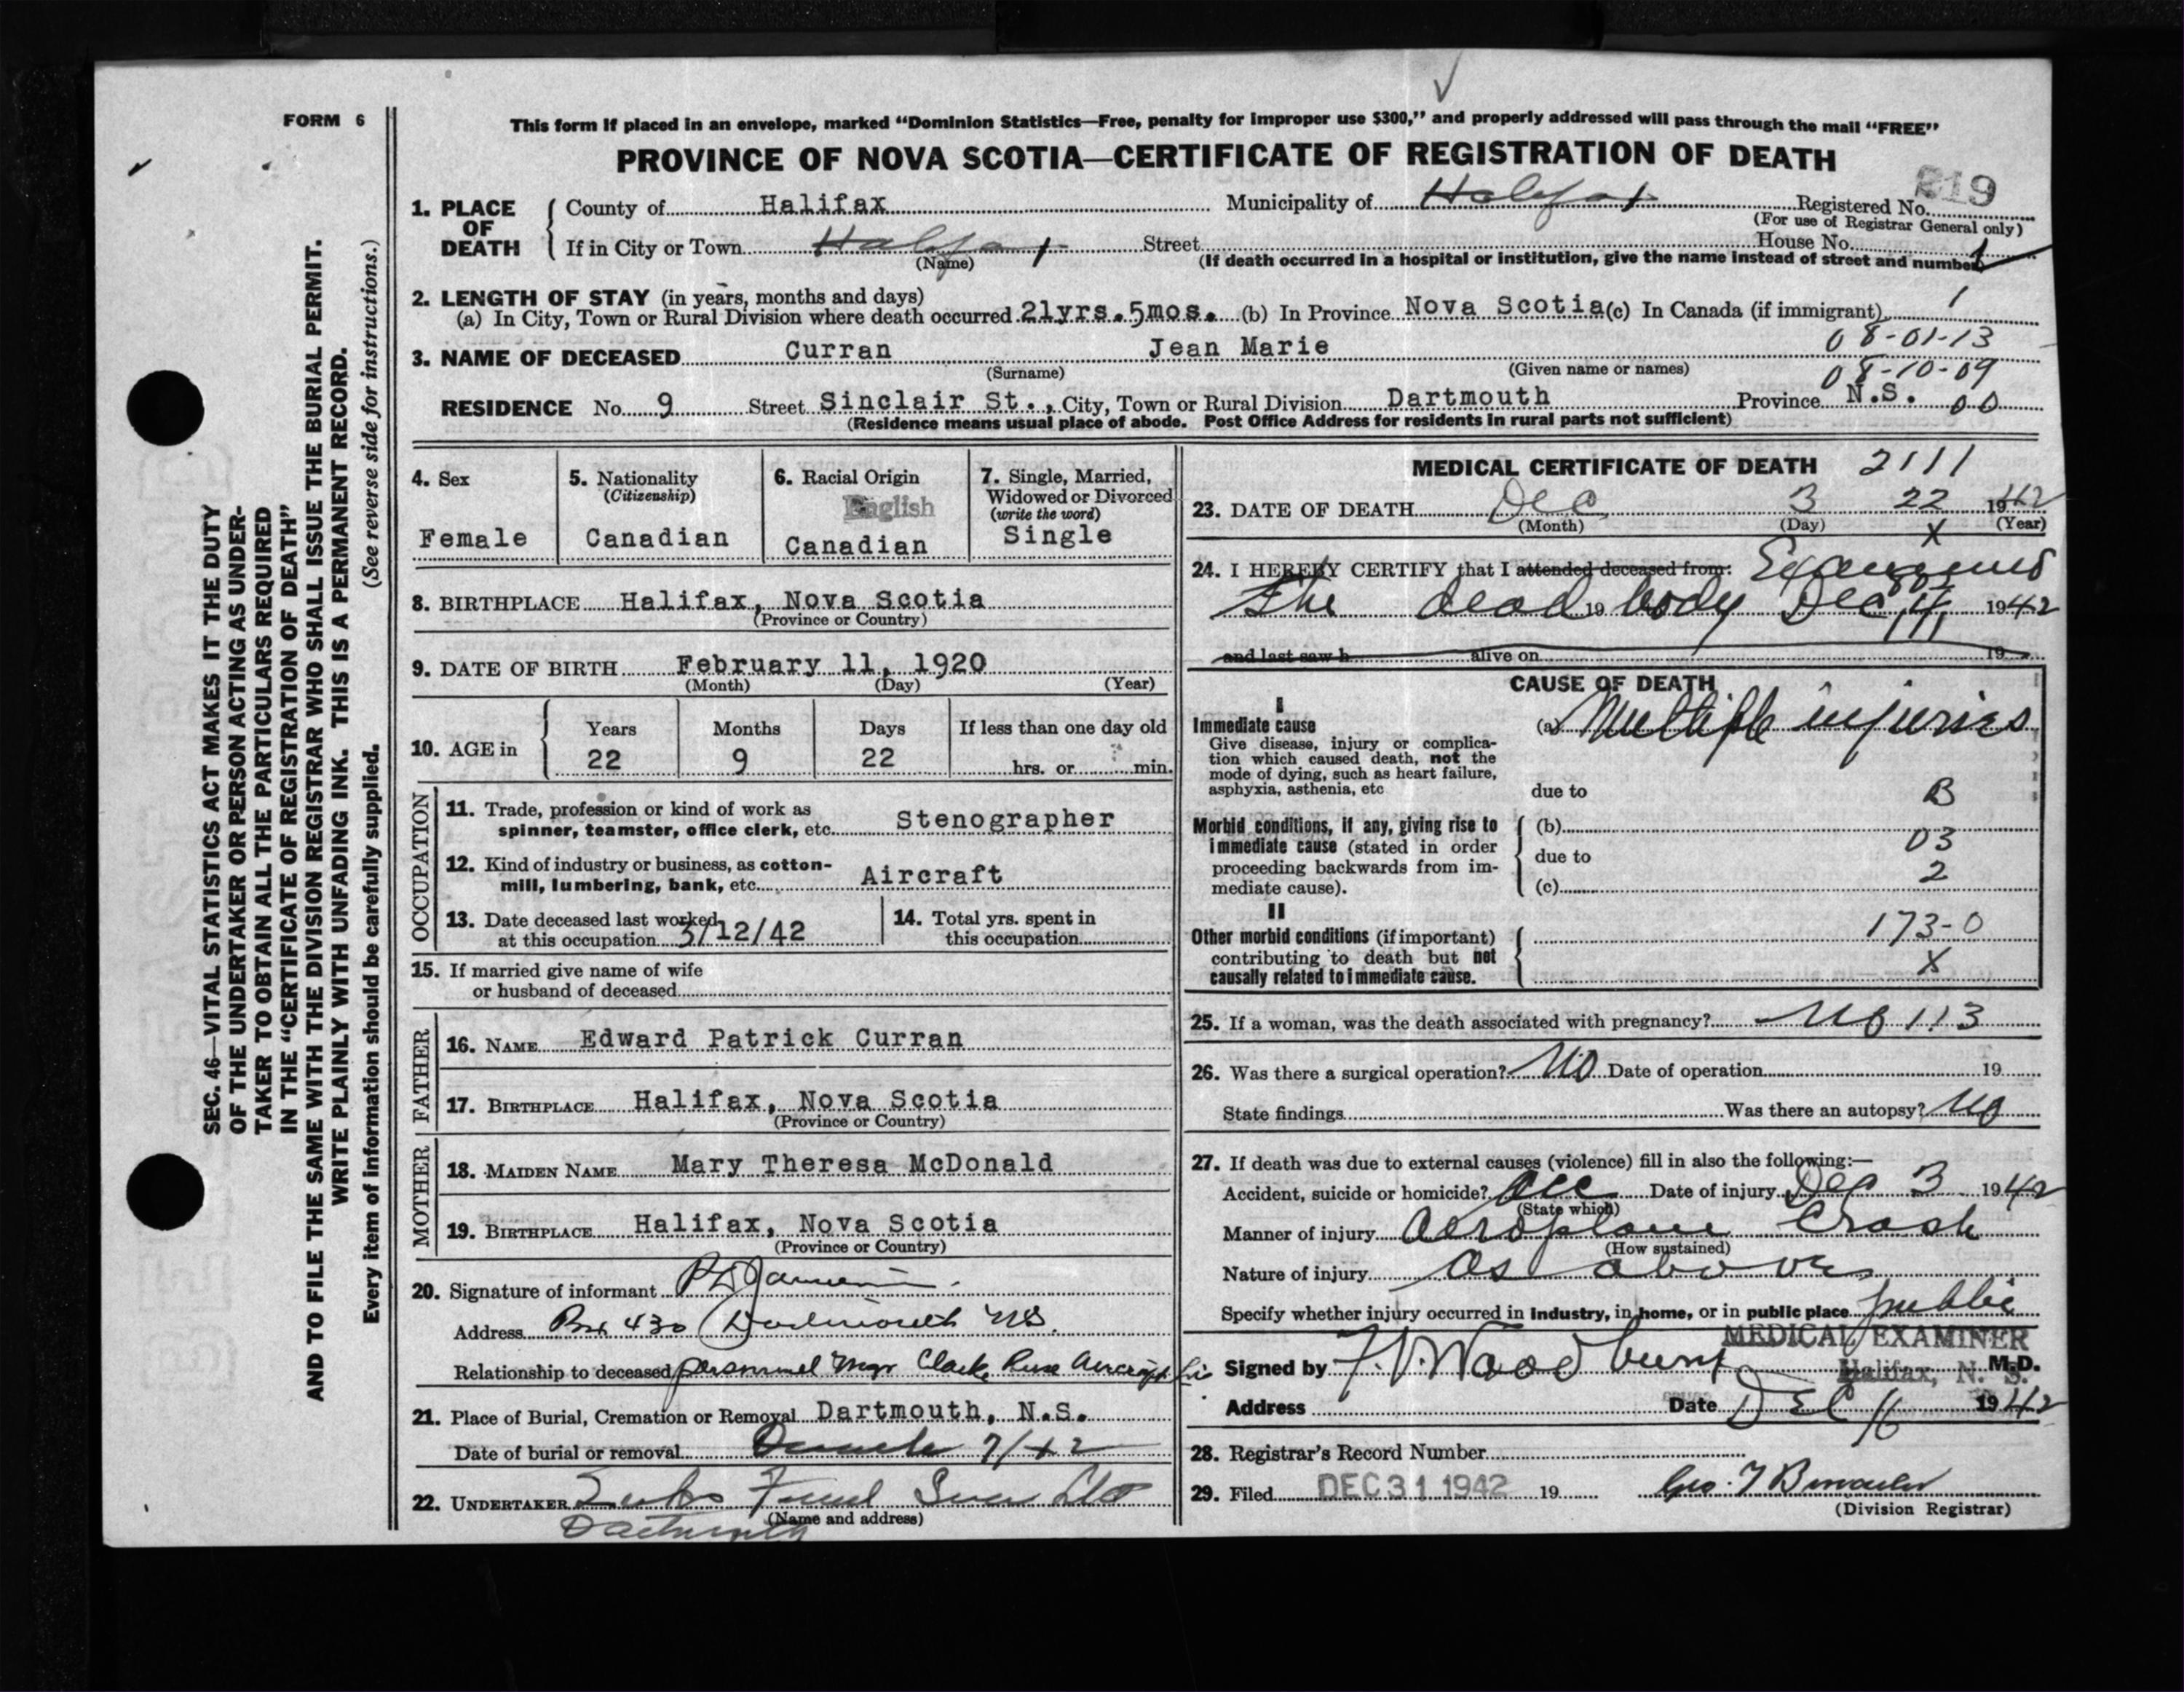 FORM 6
This form if placed in an envelope, marked “Dominion Statistics—Free, penalty for improper use $300,” and properly addressed will pass through the mail “FREE”
PROVINCE OF NOVA SCOTIA—CERTIFICATE OF REGISTRATION OF DEATH
219
1. PLACE OF DEATH
County of Halifax Municipality of Halifax Registered No.
(For use of Registrar General only)
If in City or Town Halifax Street House No.
(Name) (If death occurred in a hospital or institution, give the name instead of street and number)
2. LENGTH OF STAY (in years, months and days)
(a) In City, Town or Rural Division where death occurred 21yrs. 5mos. (b) In Province Nova Scotia (c) In Canada (if immigrant) 1
08-01-13
3. NAME OF DECEASED Curran Jean Marie
(Surname) (Given name or names)
08-10-09
RESIDENCE No. 9 Street Sinclair St., City, Town or Rural Division Dartmouth Province N.S. 00
(Residence means usual place of abode. Post Office Address for residents in rural parts not sufficient)
4. Sex
Female
5. Nationality
(Citizenship)
Canadian
6. Racial Origin
English
Canadian
7. Single, Married,
Widowed or Divorced
(write the word)
Single
8. BIRTHPLACE Halifax, Nova Scotia
(Province or Country)
9. DATE OF BIRTH February 11, 1920
(Month) (Day) (Year)
10. AGE in
Years Months Days If less than one day old
22 9 22 hrs. or min.
OCCUPATION
11. Trade, profession or kind of work as
spinner, teamster, office clerk, etc. Stenographer
12. Kind of industry or business, as cotton-
mill, lumbering, bank, etc. Aircraft
13. Date deceased last worked
at this occupation 3/12/42
14. Total yrs. spent in
this occupation
15. If married give name of wife
or husband of deceased
FATHER
16. NAME Edward Patrick Curran
17. BIRTHPLACE Halifax, Nova Scotia
(Province or Country)
MOTHER
18. MAIDEN NAME Mary Theresa McDonald
19. BIRTHPLACE Halifax, Nova Scotia
(Province or Country)
20. Signature of informant
Address Box 430 Dartmouth NS.
Relationship to deceased personnel Mgr Clark Ruse Aircraft
21. Place of Burial, Cremation or Removal Dartmouth, N.S.
Date of burial or removal 7/42
22. UNDERTAKER
(Name and address)
Dartmouth
MEDICAL CERTIFICATE OF DEATH 2111
23. DATE OF DEATH Dec 3 22 1942
(Month) (Day) X (Year)
24. I HEREBY CERTIFY that I attended deceased from: Examined
the dead 19 body Dec 4 1942
and last saw h alive on 19
CAUSE OF DEATH
I
Immediate cause
Give disease, injury or complica-
tion which caused death, not the
mode of dying, such as heart failure,
asphyxia, asthenia, etc
(a) Multiple injuries
due to B
Morbid conditions, if any, giving rise to
immediate cause (stated in order
proceeding backwards from im-
mediate cause).
(b)
03
due to
2
(c)
II
Other morbid conditions (if important)
contributing to death but not
causally related to immediate cause.
173-0
X
25. If a woman, was the death associated with pregnancy? No 113
26. Was there a surgical operation? No Date of operation 19
State findings Was there an autopsy? No
27. If death was due to external causes (violence) fill in also the following:—
Accident, suicide or homicide? Acc Date of injury Dec 3 1942
(State which)
Manner of injury Aeroplane Crash
(How sustained)
Nature of injury As above
Specify whether injury occurred in industry, in home, or in public place public
MEDICAL EXAMINER
Signed by F.V. Woodbury M.D.
Halifax, N. S.
Address Date Dec 16 1942
28. Registrar's Record Number
29. Filed DEC 31 1942 19
(Division Registrar)
SEC. 46—VITAL STATISTICS ACT MAKES IT THE DUTY
OF THE UNDERTAKER OR PERSON ACTING AS UNDER-
TAKER TO OBTAIN ALL THE PARTICULARS REQUIRED
IN THE “CERTIFICATE OF REGISTRATION OF DEATH”
AND TO FILE THE SAME WITH THE DIVISION REGISTRAR WHO SHALL ISSUE THE BURIAL PERMIT.
WRITE PLAINLY WITH UNFADING INK. THIS IS A PERMANENT RECORD.
Every item of information should be carefully supplied. (See reverse side for instructions.)